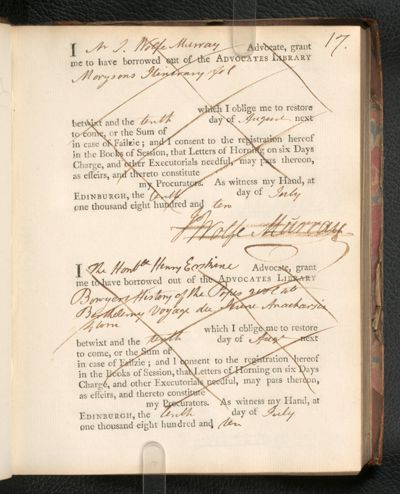 17.
I Mr J. Wolfe Murray Advocate, grant
me to have borrowed out of the ADVOCATES LIBRARY
Morysons Itinerary fol
which I oblige me to restore
betwixt and the tenth day of August next
to come, or the Sum of
in case of Failzie; and I consent to the registration hereof
in the Books of Session, that Letters of Horning on six Days
Charge, and other Executorials needful, may pass thereon,
as effeirs, and thereto constitute
my Procurators. As witness my Hand, at
EDINBURGH, the tenth day of July
one thousand eight hundred and ten
J Wolfe Murray
I The Honble Henry Erskine Advocate, grant
me to have borrowed out of the ADVOCATES LIBRARY
Bowyers History of the Popes
Barthelemy Voyage du Jeune Anacharsis
4 tom
which I oblige me to restore
betwixt and the tenth day of Augt next
to come, or the Sum of
in case of Failzie; and I consent to the registration hereof
in the Books of Session, that Letters of Horning on six Days
Charge, and other Executorials needful, may pass thereon,
as effeirs, and thereto constitute
my Procurators. As witness my Hand, at
EDINBURGH, the tenth day of July
one thousand eight hundred and ten